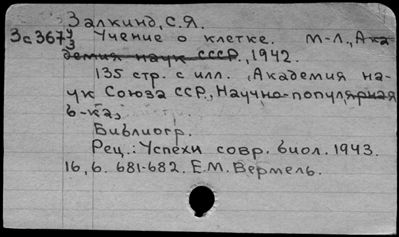 Залкинд, С.Я.
Зс367у/3 Учение о клетке. М-Л., Ака
демия наук СССР, 1942.
135 стр. с илл. (Академия на-
ук Союза ССР, Научно-популярная
б-ка)
Библиогр.
Рец.: Успехи совр. биол. 1943.
16, 6. 681-682. Е.М. Вермель.